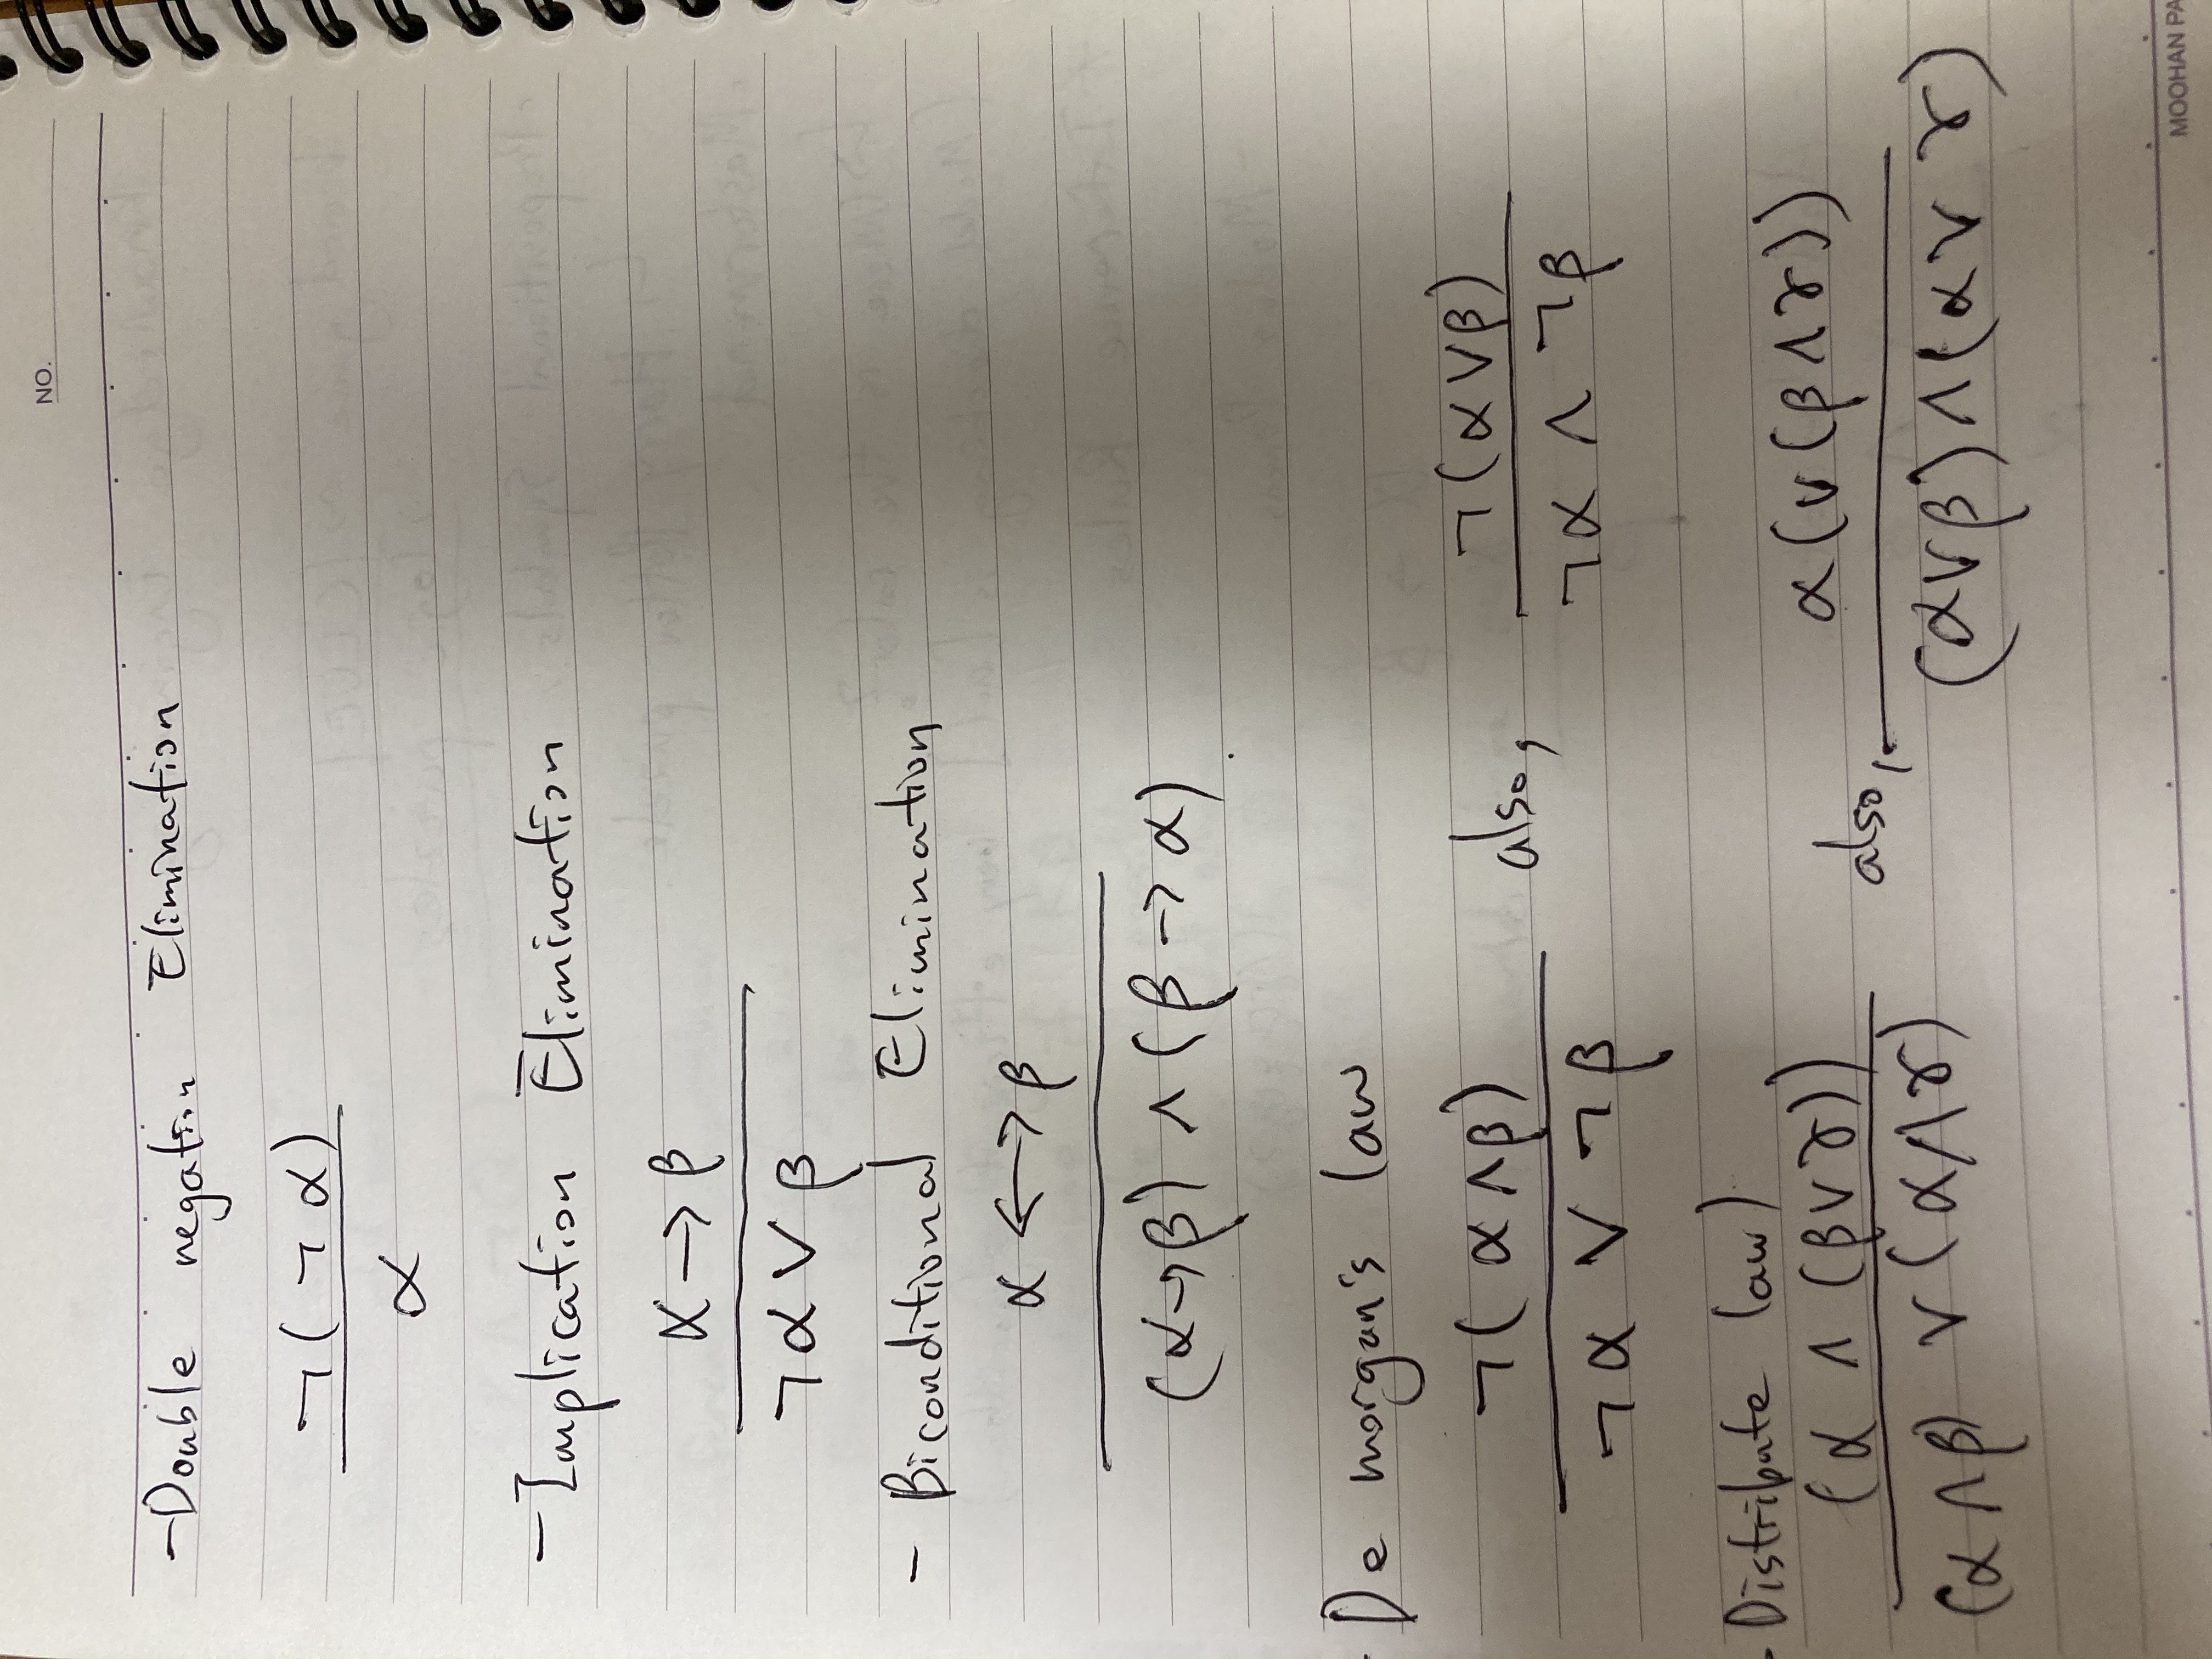 NO.
-Double negation Elimination
¬(¬α)
α
-Implication Elimination
α → β
¬α ∨ β
- Biconditional Elimination
α <-> β
(α→β) ∧ (β → α).
De morgan's law
¬(α∧β) also, ¬(α∨β)
¬α ∨ ¬β ¬α ∧ ¬β
Distribute law)
(α ∧ (β∨γ)) also, α(∨(β∧γ))
(α∧β) ∨ (α∧γ) (α∨β)∧(α∨γ)
MOOHAN PA